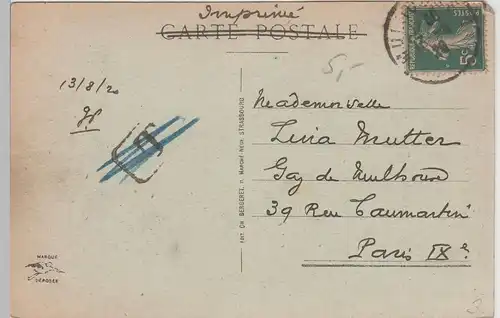 Imprimé
CARTE POSTALE
5,-
5c
POSTES
13/8/20
Mademoiselle
Lina Mutter
Gaz de Mulhouse
39 Rue Caumartin
Paris IXe
T
EDIT. CH. BERGERET, P. MARCHÉ-NEUF, STRASBOURG
MARQUE
DÉPOSÉE
3